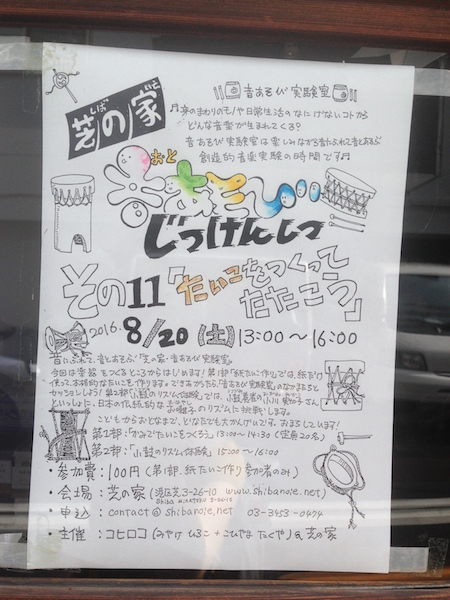 しば
芝の家
音あそび実験室
♫身のまわりのモノや日常生活のなにげないコトから
どんな音楽が生まれてくる？
音あそび実験室は楽しみながら音にふれ、音とあそぶ
創造的音楽実験の時間です♫
おと
あそび
じっけんしつ
その11「たいこをつくって
たたこう」
2016. 8/20 (土) 13:00〜16:00
音にふれて、音とあそぶ「芝の家・音あそび実験室」。
今回は楽器をつくるところからはじめます！第1部「紙たいこ作り」では、紙を
使って、本格的なたいこを作ります。できあがったら、「音あそび実験室」のなかまたちと
セッションしよう！第2部「小鼓のリズム体験」では、小鼓奏者の「小川実加子さん」
といっしょに、日本の伝統的なお囃子のリズムに挑戦します。
こどもからおとなまで、どなたでも大かんげいです。おまちしています！
第1部：「かみでたいこをつくろう」13:00〜14:30 (定員20名)
第2部：「小鼓のリズム体験」15:00〜16:00
・参加費：100円（第1部.紙たいこ作り参加者のみ）
・会場：芝の家（港区芝3-26-10 www.shibanoie.net）
・申込：contact@shibanoie.net 03-3453-0474
・主催：コヒロコ（みやけひろこ＋こひやまたくや）&芝の家